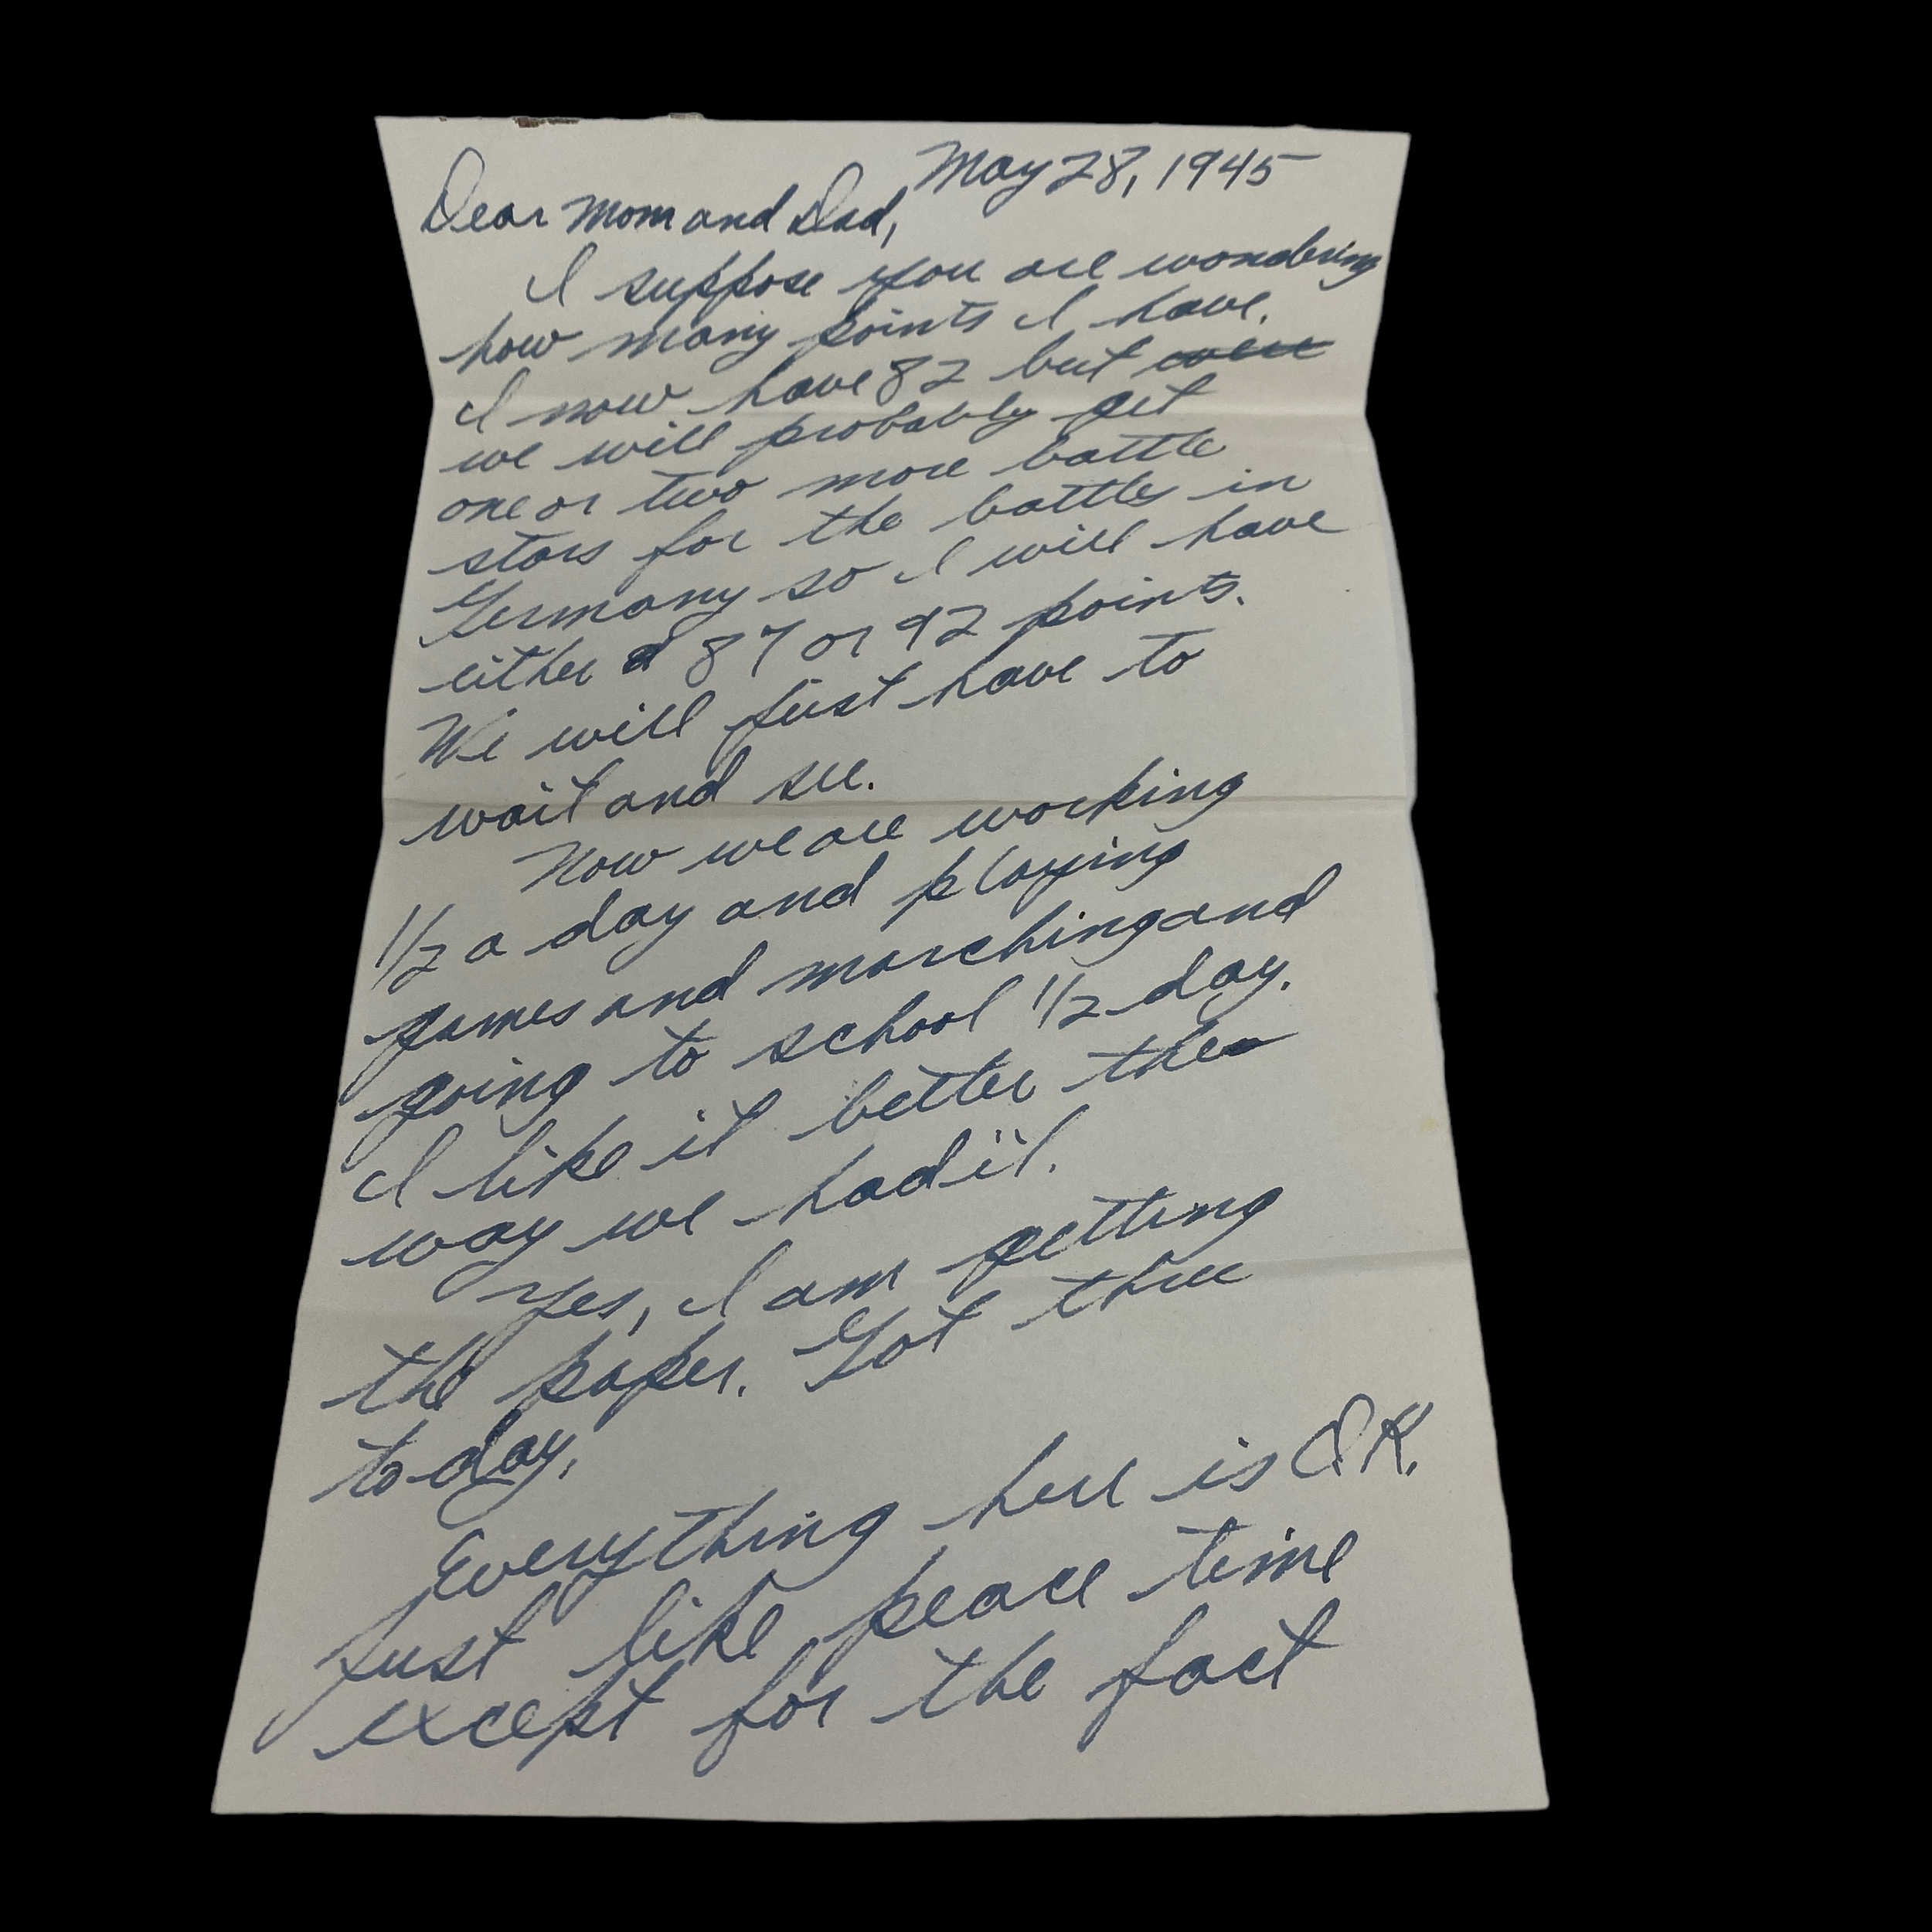 May 28, 1945
Dear Mom and Dad,
I suppose you are wondering
how many points I have.
I now have 82 but were
we will probably get
one or two more battle
stars for the battles in
Germany so I will have
either 87 or 92 points.
We will just have to
wait and see.
Now we are working
1/2 a day and playing
games and marching and
going to school 1/2 day.
I like it better the
way we had it.
Yes, I am getting
the paper. Got three
to-day.
Everything here is O.K.
just like peace time
except for the fact